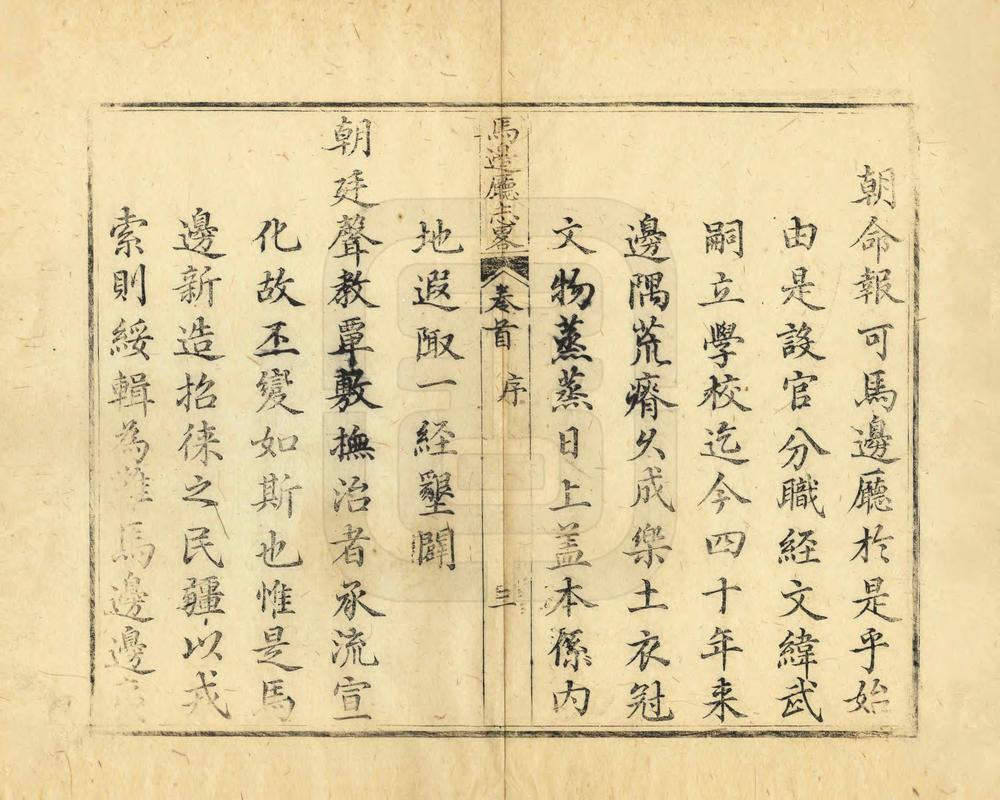 朝命報可馬邊廳於是乎始
由是設官分職経文緯武
嗣立學校迄今四十年来
邊隅荒瘠久成樂土衣冠
文物蒸蒸日上盖本係内
馬邊廳志畧 卷首 序 三
地遐陬一経墾闢
朝廷聲教覃敷撫治者承流宣
化故丕變如斯也惟是馬
邊新造招徠之民疆以戎
索則綏輯為難馬邊邊